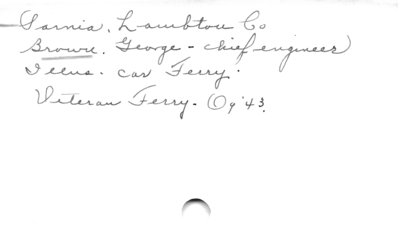 Sarnia, Lambton Co
Browne, George - chief engineer
car Ferry.
Veteran Ferry. '43.